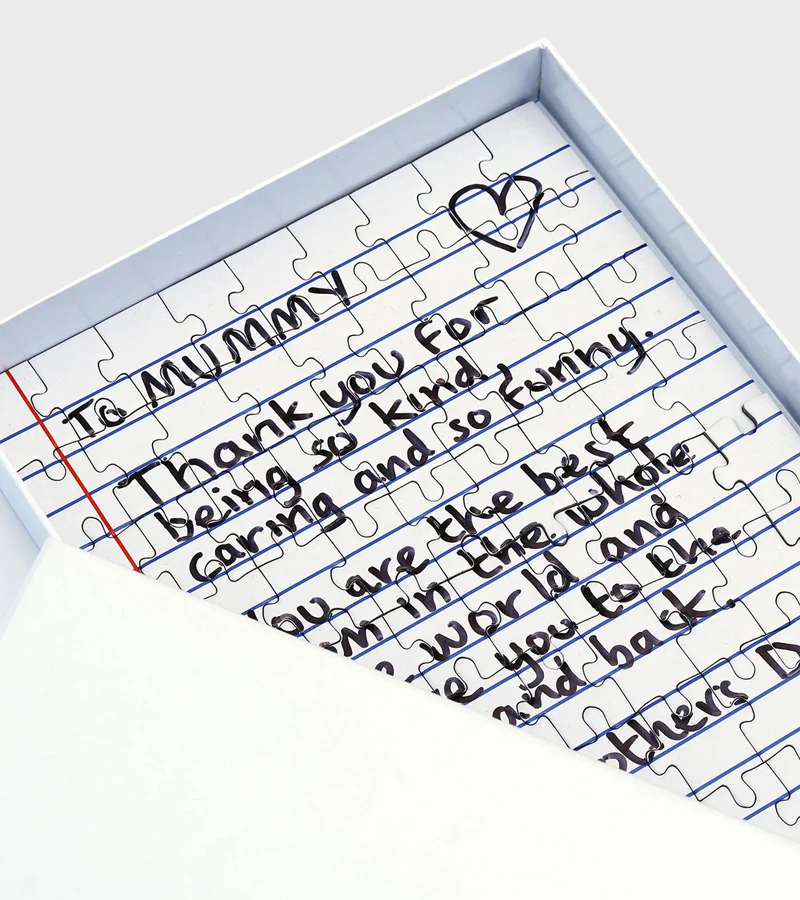 To MUMMY
Thank you for
being so kind,
caring and so funny.
you are the best
in the whole
world and
you to the
and back.